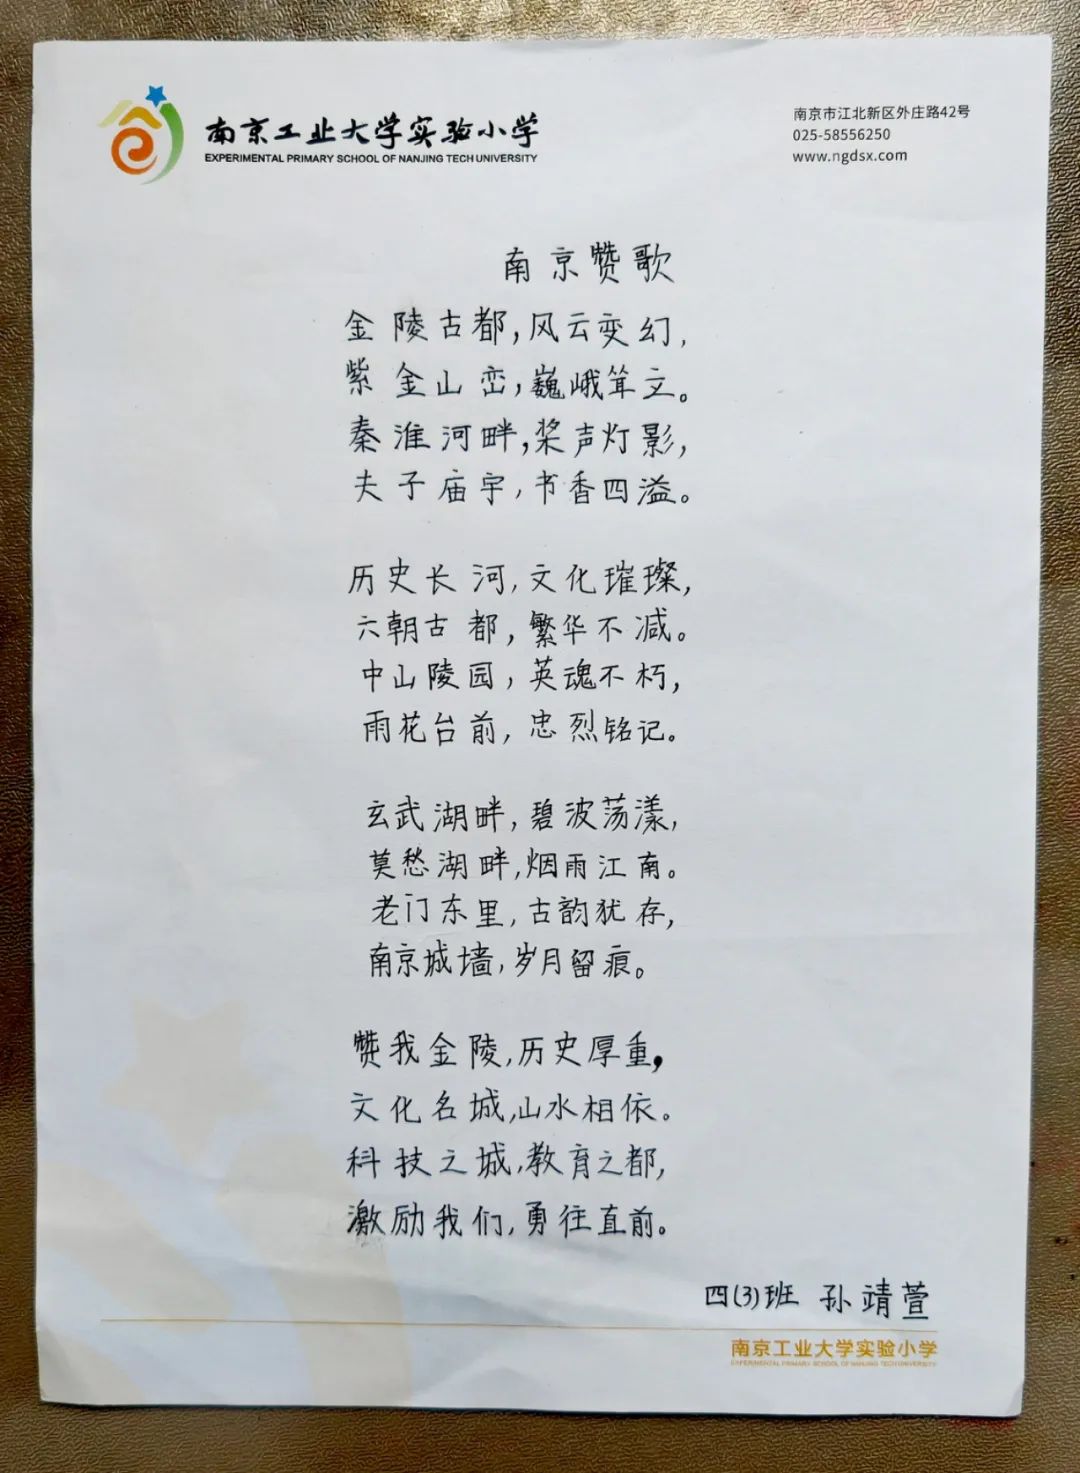 南京工业大学实验小学
EXPERIMENTAL PRIMARY SCHOOL OF NANJING TECH UNIVERSITY
南京市江北新区外庄路42号
025-58556250
www.ngdsx.com
南京赞歌
金陵古都,风云变幻,
紫金山峦,巍峨耸立。
秦淮河畔,桨声灯影,
夫子庙宇,书香四溢。
历史长河,文化璀璨,
六朝古都,繁华不减。
中山陵园,英魂不朽,
雨花台前,忠烈铭记。
玄武湖畔,碧波荡漾,
莫愁湖畔,烟雨江南。
老门东里,古韵犹存,
南京城墙,岁月留痕。
赞我金陵,历史厚重,
文化名城,山水相依。
科技之城,教育之都,
激励我们,勇往直前。
四(3)班 孙靖萱
南京工业大学实验小学
EXPERIMENTAL PRIMARY SCHOOL OF NANJING TECH UNIVERSITY